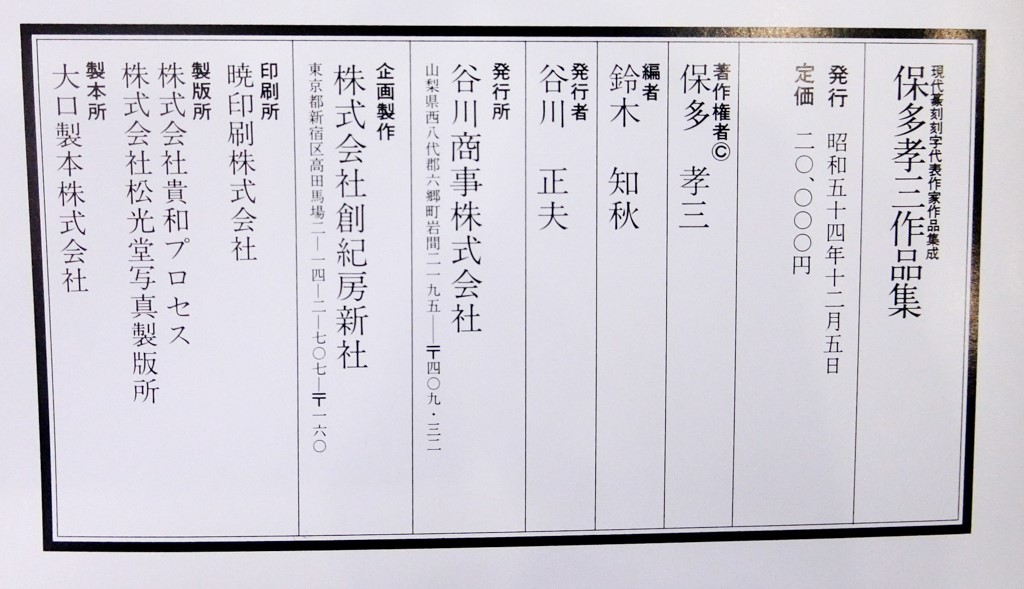 現代篆刻刻字代表作家作品集成
保多孝三作品集
発行 昭和五十四年十二月五日
定価 二〇、〇〇〇円
著作権者Ⓒ
保多 孝三
編者
鈴木 知秋
発行者
谷川 正夫
発行所
谷川商事株式会社
山梨県西八代郡六郷町岩間二一九五―〒四〇九・三二
企画製作
株式会社創紀房新社
東京都新宿区高田馬場二―一四―二―七〇七―〒一六〇
印刷所
暁印刷株式会社
製版所
株式会社貴和プロセス
株式会社松光堂写真製版所
製本所
大口製本株式会社